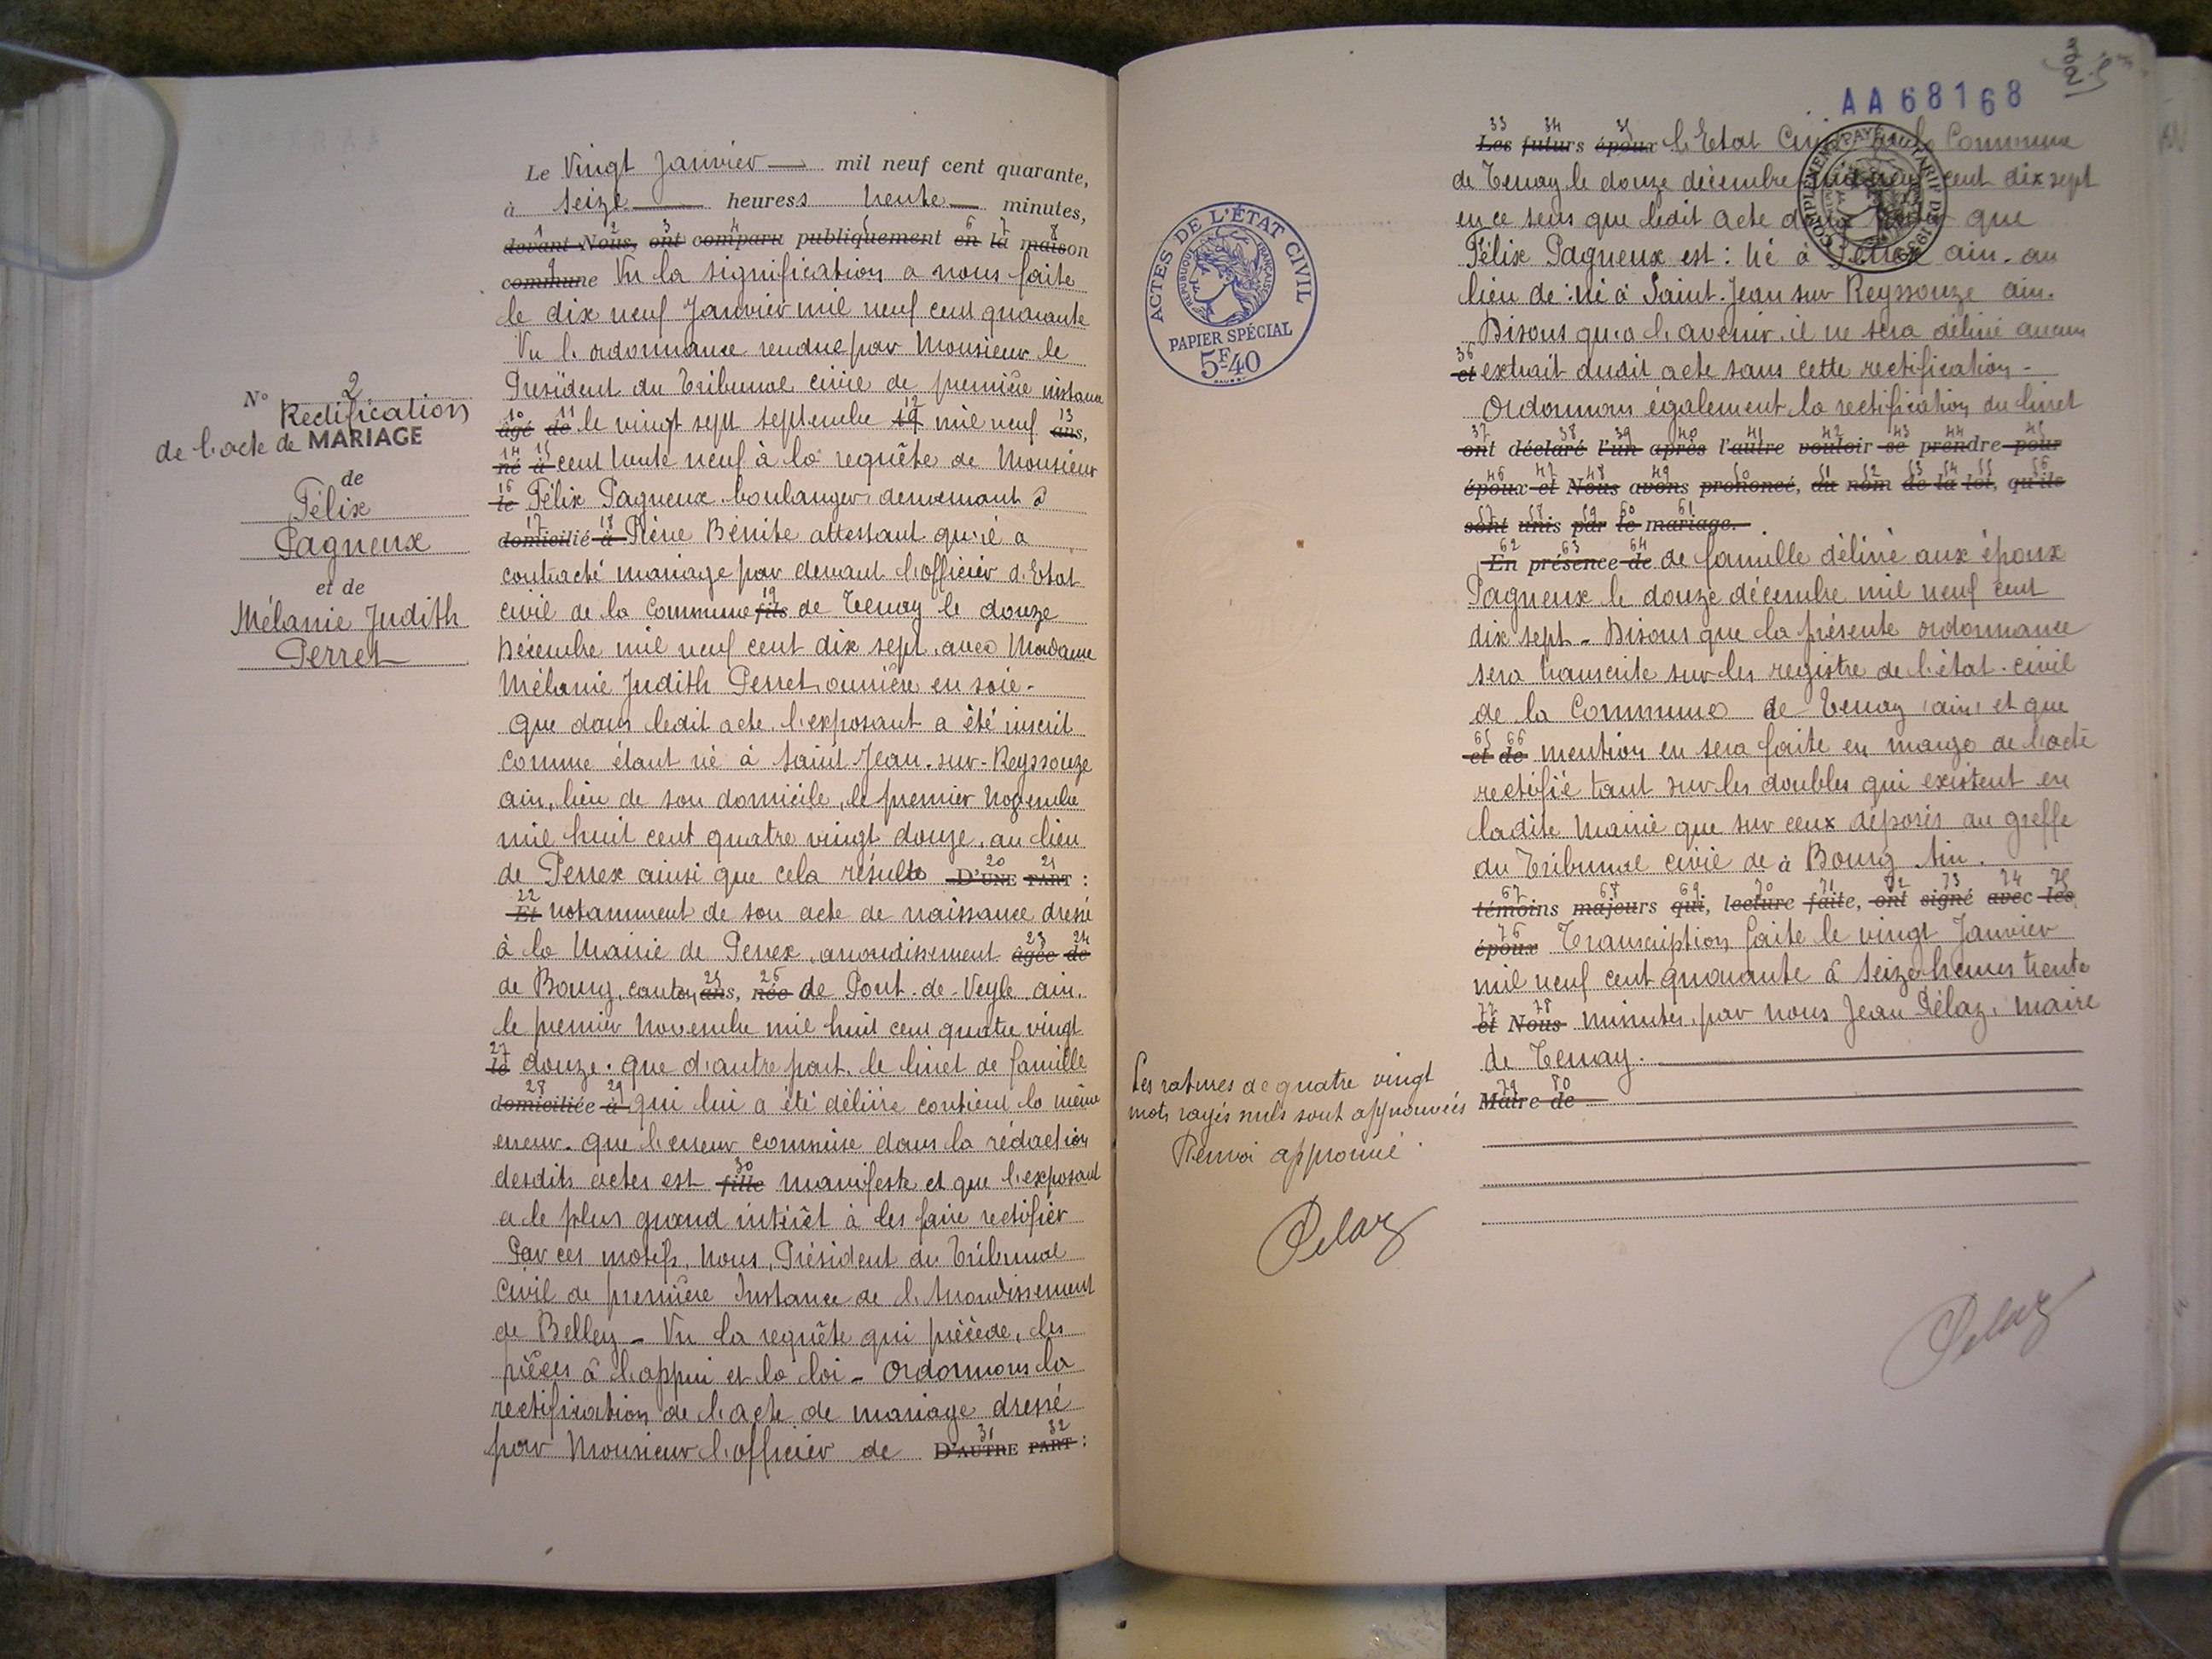 N° 2
Rectification
de l'acte de MARIAGE
de
Félix
Pagneux
et de
Mélanie Judith
Perret
Le Vingt Janvier mil neuf cent quarante,
à seize heures trente minutes,
1 2 3 4 5 6 7 8
devant Nous, ont comparu publiquement en la maison
9
commune Vu la signification a nous faite
le dix neuf Janvier mil neuf cent quarante
Vu l'ordonnance rendue par Monsieur le
Président du Tribunal civil de première instance
10 11 12 13
âgé de le vingt sept septembre 19 mil neuf ans,
14 15
né à cent trente neuf à la requête de Monsieur
16
le Félix Pagneux boulanger demeurant à
17 18
domicilié à Pierre Bénite attestant qu'il a
contracté mariage par devant l'officier d'Etat
19
civil de la Commune fils de Tenay le douze
Décembre mil neuf cent dix sept, avec Madame
Mélanie Judith Perret, ouvrière en soie -
que dans ledit acte l'exposant a été inscrit
comme étant né à Saint Jean-sur-Reyssouze
ain, lieu de son domicile, le premier Novembre
mil huit cent quatre vingt douze, au lieu
20 21
de Perrex ainsi que cela résulte D'UNE PART :
22
Et notamment de son acte de naissance dressé
23 24
à la Mairie de Perrex, arrondissement âgée de
25 26
de Bourg, canton ans, née de Pont-de-Veyle, ain,
le premier Novembre mil huit cent quatre vingt
27
le douze. que d'autre part, le livret de famille
28 29
domiciliée à qui lui a été délivré contient la même
erreur. que l'erreur commise dans la rédaction
30
desdits actes est fille manifeste et que l'exposant
a le plus grand intérêt à les faire rectifier
Par ces motifs, Nous, Président du Tribunal
Civil de première Instance de l'Arrondissement
de Belley - Vu la requête qui précède, les
pièces à l'appui et la loi - Ordonnons la
rectification de l'acte de mariage dressé
31 32
par Monsieur l'officier de D'AUTRE PART :
ACTES DE L'ÉTAT CIVIL
RÉPUBLIQUE FRANÇAISE
PAPIER SPÉCIAL
5F40
Les ratures de quatre vingt
mots rayés nuls sont approuvées
Renvoi approuvé
Pélaz
AA68168
COMPLÉMENT PAYÉ AU TARIF DE
33 34 35
Les futurs époux l'Etat Civil de la Commune
de Tenay le douze décembre mil neuf cent dix sept
en ce sens que ledit acte que
Félix Pagneux est : né à Perrex ain - au
lieu de : né à Saint-Jean sur Reyssouze ain.
Disons qu'à l'avenir, il ne sera délivré aucun
36
et extrait dudit acte sans cette rectification -
Ordonnons également la rectification du livret
37 38 39 40 41 42 43 44 45
ont déclaré l'un après l'autre vouloir se prendre pour
46 47 48 49 50 51 52 53 54 55 56
époux et Nous avons prononcé, au nom de la loi, qu'ils
57 58 59 60 61
sont unis par le mariage.
62 63 64
En présence de de famille délivré aux époux
Pagneux le douze décembre mil neuf cent
dix sept - Disons que la présente ordonnance
sera transcrite sur les registre de l'état-civil
de la Commune de Tenay (ain) et que
65 66
et de mention en sera faite en marge de l'acte
rectifié tant sur les doubles qui existent en
ladite Mairie que sur ceux déposés au greffe
du Tribunal civil de à Bourg Ain.
67 68 69 70 71 72 73 74 75
témoins majeurs qui, lecture faite, ont signé avec les
76
époux Transcription faite le vingt Janvier
mil neuf cent quarante à seize heures trente
77 78
et Nous minutes, par nous Jean Pélaz, maire
de Tenay.
79 80
Maire de
Pélaz